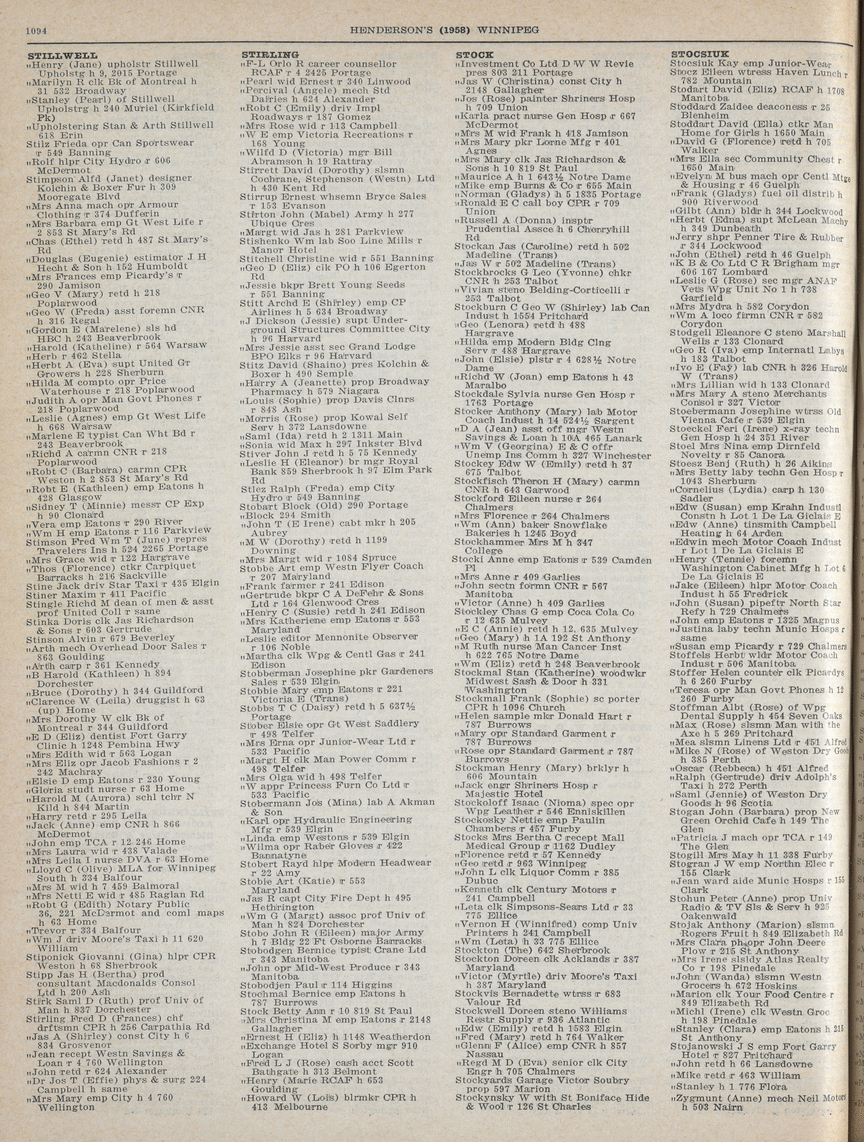 1094
HENDERSON'S (1958) WINNIPEG
STILLWELL
„Henry (Jane) upholstr Stillwell
Upholstg h 9, 2015 Portage
„Marilyn R clk Bk of Montreal h
31 532 Broadway
„Stanley (Pearl) of Stillwell
Upholstrg h 240 Muriel (Kirkfield
Pk)
„Upholstering Stan & Arth Stillwell
618 Erin
Stilz Frieda opr Can Sportswear
r 549 Banning
„Rolf hlpr City Hydro r 606
McDermot
Stimpson Alfd (Janet) designer
Kolchin & Boxer Fur h 309
Mooregate Blvd
„Mrs Anna mach opr Armour
Clothing r 374 Dufferin
„Mrs Barbara emp Gt West Life r
2 853 St Mary's Rd
„Chas (Ethel) retd h 487 St Mary's
Rd
„Douglas (Eugenie) estimator J H
Hecht & Son h 152 Humboldt
„Mrs Frances emp Picardy's r
290 Jamison
„Geo V (Mary) retd h 218
Poplarwood
„Geo W (Freda) asst foremn CNR
h 316 Regal
„Gordon E (Marelene) sls hd
HBC h 243 Beaverbrook
„Harold (Katheline) r 564 Warsaw
„Herb r 462 Stella
„Herbt A (Eva) supt United Gr
Growers h 228 Sherburn
„Hilda M compto opr Price
Waterhouse r 218 Poplarwood
„Judith A opr Man Govt Phones r
218 Poplarwood
„Leslie (Agnes) emp Gt West Life
h 668 Warsaw
„Marlene E typist Can Wht Bd r
243 Beaverbrook
„Richd A carmn CNR r 218
Poplarwood
„Robt C (Barbara) carmn CPR
Weston h 2 853 St Mary's Rd
„Robt E (Kathleen) emp Eatons h
428 Glasgow
„Sidney T (Minnie) messr CP Exp
h 90 Clonard
„Vera emp Eatons r 290 River
„Wm H emp Eatons r 116 Parkview
Stimson Fred Wm T (June) repres
Travelers Ins h 524 2265 Portage
„Mrs Grace wid r 122 Hargrave
„Thos (Florence) ctkr Carpiquet
Barracks h 216 Sackville
Stine Jack driv Star Taxi r 435 Elgin
Stiner Maxim r 411 Pacific
Stingle Richd M dean of men & asst
prof United Coll r same
Stinka Doris clk Jas Richardson
& Sons r 603 Gertrude
Stinson Alvin r 679 Beverley
„Arth mech Overhead Door Sales r
863 Goulding
„Arth carp r 361 Kennedy
„B Harold (Kathleen) h 894
Dorchester
„Bruce (Dorothy) h 344 Guildford
„Clarence W (Leila) druggist h 63
(up) Home
„Mrs Dorothy W clk Bk of
Montreal r 344 Guildford
„E D (Eliz) dentist Fort Garry
Clinic h 1248 Pembina Hwy
„Mrs Edith wid r 563 Logan
„Mrs Eliz opr Jacob Fashions r 2
242 Machray
„Elsie D emp Eatons r 230 Young
„Gloria studt nurse r 63 Home
„Harold M (Aurora) schl tchr N
Kild h 844 Martin
„Harry retd r 295 Leila
„Jack (Anne) emp CNR h 866
McDermot
„John emp TCA r 12 246 Home
„Mrs Laura wid r 438 Valade
„Mrs Leila I nurse DVA r 63 Home
„Lloyd C (Olive) MLA for Winnipeg
South h 334 Balfour
„Mrs M wid h 7 459 Balmoral
„Mrs Netti E wid r 485 Raglan Rd
„Robt G (Edith) Notary Public
36, 221 McDermot and coml maps
h 63 Home
„Trevor r 334 Balfour
„Wm J driv Moore's Taxi h 11 620
William
Stiponick Giovanni (Gina) hlpr CPR
Weston h 68 Sherbrook
Stipp Jas H (Bertha) prod
consultant Macdonalds Consol
Ltd h 200 Ash
Stirk Saml D (Ruth) prof Univ of
Man h 837 Dorchester
Stirling Fred D (Frances) chf
drftsmn CPR h 256 Carpathia Rd
„Jas A (Shirley) const City h 6
834 Grosvenor
„Jean recept Westn Savings &
Loan r 4 760 Wellington
„John retd r 624 Alexander
„Dr Jos T (Effie) phys & surg 224
Campbell h same
„Mrs Mary emp City h 4 760
Wellington
STIRLING
„F-L Orlo R career counsellor
RCAF r 4 2425 Portage
„Pearl wid Ernest r 340 Linwood
„Percival (Angele) mech Std
Dairies h 624 Alexander
„Robt C (Emily) driv Impl
Roadways r 187 Gomez
„Mrs Rose wid r 113 Campbell
„W E emp Victoria Recreations r
168 Young
„Wilfd D (Victoria) mgr Bill
Abramson h 19 Rattray
Stirrett David (Dorothy) slsmn
Cochrane, Stephenson (Westn) Ltd
h 430 Kent Rd
Stirrup Ernest whsemn Bryce Sales
r 153 Evanson
Stirton John (Mabel) Army h 277
Ubique Cres
„Margt wid Jas h 281 Parkview
Stishenko Wm lab Soo Line Mills r
Manor Hotel
Stitchell Christine wid r 551 Banning
„Geo D (Eliz) clk PO h 106 Egerton
Rd
„Jessie bkpr Brett Young Seeds
r 551 Banning
Stitt Archd E (Shirley) emp CP
Airlines h 5 634 Broadway
„J Dickson (Jessie) supt Under-
ground Structures Committee City
h 96 Harvard
„Mrs Jessie asst sec Grand Lodge
BPO Elks r 96 Harvard
Stitz David (Shaino) pres Kolchin &
Boxer h 490 Semple
„Harry A (Jeanette) prop Broadway
Pharmacy h 579 Niagara
„Louis (Sophie) prop Davis Clnrs
r 848 Ash
„Morris (Rose) prop Kowal Self
Serv h 372 Lansdowne
„Saml (Ida) retd h 2 1311 Main
„Sonia wid Max h 297 Inkster Blvd
Stiver John J retd h 5 75 Kennedy
„Leslie H (Eleanor) br mgr Royal
Bank 859 Sherbrook h 97 Elm Park
Rd
Stlez Ralph (Freda) emp City
Hydro r 549 Banning
Stobart Block (Old) 290 Portage
„Block 294 Smith
„John T (E Irene) cabt mkr h 205
Aubrey
„M W (Dorothy) retd h 1199
Downing
„Mrs Margt wid r 1084 Spruce
Stobbe Art emp Westn Flyer Coach
r 207 Maryland
„Frank farmer r 241 Edison
„Gertrude bkpr C A DeFehr & Sons
Ltd r 164 Glenwood Cres
„Henry C (Susie) retd h 241 Edison
„Mrs Katheriene emp Eatons r 553
Maryland
„Leslie editor Mennonite Observer
r 106 Noble
„Martha clk Wpg & Centl Gas r 241
Edison
Stobberman Josephine pkr Gardeners
Sales r 539 Elgin
Stobbie Mary emp Eatons r 221
Victoria E (Trans)
Stobbs T C (Daisy) retd h 5 637½
Portage
Stober Elsie opr Gt West Saddlery
r 498 Telfer
„Mrs Erna opr Junior-Wear Ltd r
533 Pacific
„Margt H clk Man Power Comm r
498 Telfer
„Mrs Olga wid h 498 Telfer
„W appr Princess Furn Co Ltd r
533 Pacific
Stobermann Jos (Mina) lab A Akman
& Son
„Karl opr Hydraulic Engineering
Mfg r 539 Elgin
„Linda emp Westons r 539 Elgin
„Wilma opr Raber Gloves r 422
Bannatyne
Stobert Rayd hlpr Modern Headwear
r 22 Amy
Stobie Art (Katie) r 553
Maryland
„Jas R capt City Fire Dept h 495
Hethrington
„Wm G (Margt) assoc prof Univ of
Man h 824 Dorchester
Stobo John R (Eileen) major Army
h 7 Bldg 22 Ft Osborne Barracks
Stobodgen Bernice typist Crane Ltd
r 343 Manitoba
„John opr Mid-West Produce r 343
Manitoba
Stobodjen Paul r 114 Higgins
Stochmal Bernice emp Eatons h
787 Burrows
Stock Betty Ann r 10 819 St Paul
„Mrs Christina M emp Eatons r 2148
Gallagher
„Ernest H (Eliz) h 1148 Weatherdon
„Exchange Hotel S Sorby mgr 910
Logan
„Fred L J (Rose) cash acct Scott
Bathgate h 313 Belmont
„Henry (Marie RCAF h 653
Goulding
„Howard W (Lois) blrmkr CPR h
413 Melbourne
STOCK
„Investment Co Ltd D W W Revie
pres 803 211 Portage
„Jas W (Christina) const City h
2148 Gallagher
„Jos (Rose) painter Shriners Hosp
h 709 Union
„Karla pract nurse Gen Hosp r 667
McDermot
„Mrs M wid Frank h 418 Jamison
„Mrs Mary pkr Lorne Mfg r 401
Agnes
„Mrs Mary clk Jas Richardson &
Sons h 10 819 St Paul
„Maurice A h 1 643½ Notre Dame
„Mike emp Burns & Co r 655 Main
„Norman (Gladys) h 5 1835 Portage
„Ronald E C call boy CPR r 709
Union
„Russell A (Donna) insptr
Prudential Assce h 6 Cherryhill
Rd
Stockan Jas (Caroline) retd h 502
Madeline (Trans)
„Jas W r 502 Madeline (Trans)
Stockbrocks G Leo (Yvonne) chkr
CNR h 253 Talbot
„Vivian steno Belding-Corticelli r
253 Talbot
Stockburn C Geo W (Shirley) lab Can
Indust h 1554 Pritchard
„Geo (Lenora) retd h 488
Hargrave
„Hilda emp Modern Bldg Clng
Serv r 488 Hargrave
„John (Elsie) plstr r 4 628½ Notre
Dame
„Richd W (Joan) emp Eatons h 43
Maralbo
Stockdale Sylvia nurse Gen Hosp r
1763 Portage
Stocker Anthony (Mary) lab Motor
Coach Indust h 14 524½ Sargent
„D A (Jean) asst off mgr Westn
Savings & Loan h 10A 465 Lanark
„Wm V (Georgina) E & C offr
Unemp Ins Comm h 327 Winchester
Stockey Edw W (Emily) retd h 37
675 Talbot
Stockfisch Theron H (Mary) carmn
CNR h 643 Garwood
Stockford Eileen nurse r 264
Chalmers
„Mrs Florence r 264 Chalmers
„Wm (Ann) baker Snowflake
Bakeries h 1245 Boyd
Stockhammer Mrs M h 347
College
Stocki Anne emp Eatons r 539 Camden
Pl
„Mrs Anne r 409 Garlies
„John sectn formn CNR r 567
Manitoba
„Victor (Anne) h 409 Garlies
Stockley Chas G emp Coca Cola Co
r 12 635 Mulvey
„E C (Annie) retd h 12, 635 Mulvey
„Geo (Mary) h 1A 192 St Anthony
„M Ruth nurse Man Cancer Inst
h 622 765 Notre Dame
„Wm (Eliz) retd h 248 Beaverbrook
Stockmal Stan (Katherine) woodwkr
Midwest Sash & Door h 331
Washington
Stockmall Frank (Sophie) sc porter
CPR h 1096 Church
„Helen sample mkr Donald Hart r
787 Burrows
„Mary opr Standard Garment r
787 Burrows
„Rose opr Standard Garment r 787
Burrows
Stockman Henry (Mary) brklyr h
606 Mountain
„Jack engr Shriners Hosp r
Majestic Hotel
Stockoloff Isaac (Nioma) spec opr
Wpg Leather r 546 Enniskillen
Stockosky Nettie emp Paulin
Chambers r 457 Furby
Stocks Mrs Bertha C recept Mall
Medical Group r 1162 Dudley
„Florence retd r 57 Kennedy
„Geo retd r 963 Winnipeg
„John L clk Liquor Comm r 385
Dubuc
„Kenneth clk Century Motors r
241 Campbell
„Leta clk Simpsons-Sears Ltd r 33
775 Ellice
„Vernon H (Winnifred) comp Univ
Printers h 241 Campbell
„Wm (Leta) h 33 775 Ellice
Stockton (The) 642 Sherbrook
Stockton Doreen clk Acklands r 387
Maryland
„Victor (Myrtle) driv Moore's Taxi
h 387 Maryland
Stockvis Bernadette wtrss r 683
Valour Rd
Stockwell Doreen steno Williams
Restr Supply r 936 Atlantic
„Edw (Emily) retd h 1583 Elgin
„Fred (Mary) retd h 764 Walker
„Glenn F (Alice) emp CNR h 857
Nassau
„Regd M D (Eva) senior clk City
Engr h 705 Chalmers
Stockyards Garage Victor Soubry
prop 597 Marion
Stockynsky W with St Boniface Hide
& Wool r 126 St Charles
STOCSIUK
Stocsiuk Kay emp Junior-Wear
Stocz Eileen wtress Haven Lunch r
782 Mountain
Stodart David (Eliz) RCAF h 1708
Manitoba
Stoddard Zaidee deaconess r 25
Blenheim
Stoddart David (Ella) ctkr Man
Home for Girls h 1650 Main
„David G (Florence) retd h 705
Walker
„Mrs Ella sec Community Chest r
1650 Main
„Evelyn M bus mach opr Centl Mtge
& Housing r 46 Guelph
„Frank (Gladys) fuel oil distrib h
900 Riverwood
„Gilbt (Ann) bldr h 344 Lockwood
„Herbt (Edna) supt McLean Machy
h 349 Dunbeath
„Jerry shpr Penner Tire & Rubber
r 344 Lockwood
„John (Ethel) retd h 46 Guelph
„K B & Co Ltd C R Brigham mgr
606 167 Lombard
„Leslie G (Rose) sec mgr ANAF
Vets Wpg Unit No 1 h 738
Garfield
„Mrs Mydra h 582 Corydon
„Wm A loco firmn CNR r 582
Corydon
Stodgell Eleanore C steno Marshall
Wells r 133 Clonard
„Geo R (Iva) emp Internatl Labys
h 183 Talbot
„Ivo E (Fay) lab CNR h 326 Harold
W (Trans)
„Mrs Lillian wid h 133 Clonard
„Mrs Mary A steno Merchants
Consol r 327 Victor
Stoebermann Josephine wtrss Old
Vienna Cafe r 539 Elgin
Stoeckel Feri (Irene) x-ray techn
Gen Hosp h 24 351 River
Stoel Mrs Nina emp Dirnfeld
Novelty r 85 Canora
Stoesz Benj (Ruth) h 26 Aikins
„Mrs Betty laby techn Gen Hosp r
1043 Sherburn
„Cornelius (Lydia) carp h 130
Sadler
„Edw (Susan) emp Krahn Industl
Constn h Lot 1 De La Giclais E
„Edw (Anne) tinsmith Campbell
Heating h 64 Arden
„Edwin mech Motor Coach Indust
r Lot 1 De La Giclais E
„Henry (Tennie) foremn
Washington Cabinet Mfg h Lot 6
De La Giclais E
„Jake (Eileen) hlpr Motor Coach
Indust h 55 Fredrick
„John (Susan) pipeftr North Star
Refy h 729 Chalmers
„John emp Eatons r 1325 Magnus
„Justina laby techn Munic Hosps r
same
„Susan emp Picardy r 729 Chalmers
Stoffels Herbt wldr Motor Coach
Indust r 506 Manitoba
Stoffer Helen counter clk Picardys
h 6 260 Furby
„Teresa opr Man Govt Phones h 12
260 Furby
Stoffman Albt (Rose) of Wpg
Dental Supply h 454 Seven Oaks
„Max (Rose) slsmn Man with the
Axe h 5 269 Pritchard
„Mea slsmn Linens Ltd r 451 Alfred
„Mike N (Rose) of Weston Dry Goods
h 385 Perth
„Oscar (Rebbeca) h 451 Alfred
„Ralph (Gertrude) driv Adolph's
Taxi h 272 Perth
„Saml (Jennie) of Weston Dry
Goods h 96 Scotia
Stogan John (Barbara) prop New
Green Orchid Cafe h 149 The
Glen
„Patricia J mach opr TCA r 149
The Glen
Stogill Mrs May h 11 338 Furby
Stogran J W emp Northn Elec r
155 Clark
„Jean ward aide Munic Hosps r 155
Clark
Stohun Peter (Anne) prop Univ
Radio & TV Sls & Serv h 925
Oakenwald
Stojak Anthony (Marion) slsmn
Rogers Fruit h 849 Elizabeth Rd
„Mrs Clara phopr John Deere
Plow r 215 St Anthony
„Mrs Irene slsldy Atlas Realty
Co r 198 Pinedale
„John (Wanda) slsmn Westn
Grocers h 672 Hoskins
„Marion clk Your Food Centre r
849 Elizabeth Rd
„Michl (Irene) clk Westn Groc
h 198 Pinedale
„Stanley (Clara) emp Eatons h 215
St Anthony
Stojanowski J S emp Fort Garry
Hotel r 827 Pritchard
„John retd h 66 Lansdowne
„Mike retd r 463 William
„Stanley h 1 776 Flora
„Zygmunt (Anne) mech Neil Motors
h 503 Nairn